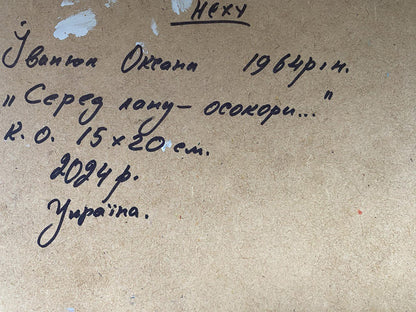 НСХУ
Іванюк Оксана 1964р.н.
„Серед лану — осокори..."
К. О. 15 х 20 см.
2024 р.
Україна.